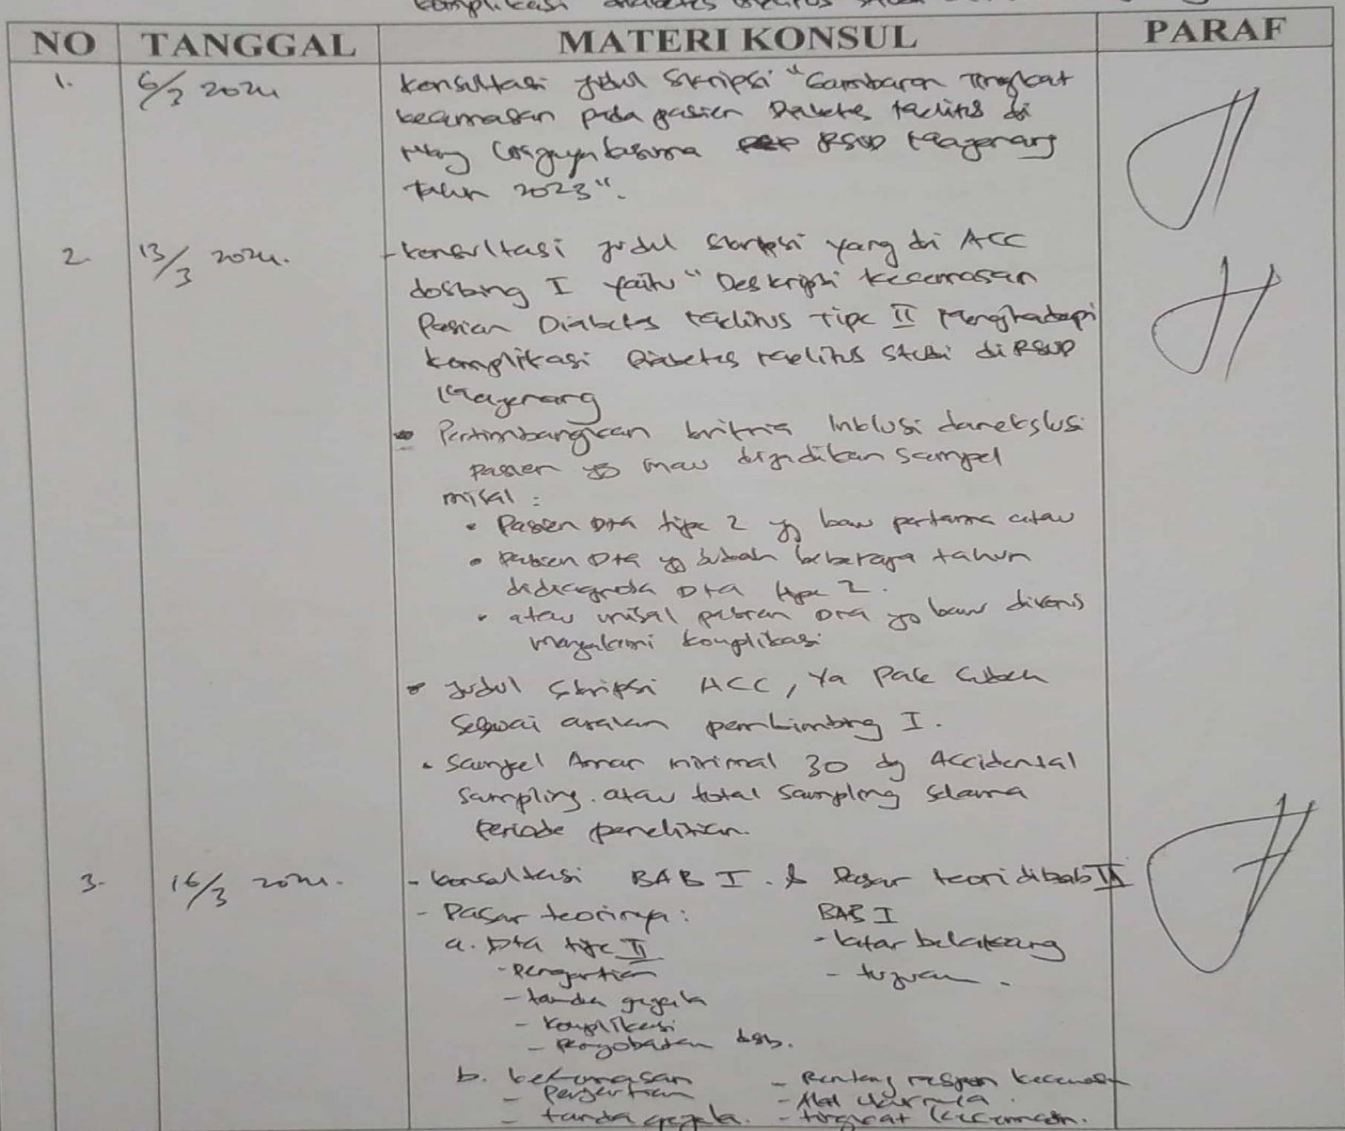 komplikasi diabetes melitus
NO TANGGAL MATERI KONSUL PARAF
1. 6/3 2024 Konsultasi judul Skripsi "Gambaran Tingkat
kecemasan pada pasien Diabetes Melitus di
RSUD Majenang
tahun 2023".
2. 13/3 2024. - Konsultasi judul skripsi yang di ACC
dosbing I yaitu "Deskripsi kecemasan
Pasien Diabetes Melitus Tipe II Menghadapi
komplikasi Diabetes Melitus Studi di RSUD
Majenang
Pertimbangkan kritria Inklusi dan ekslusi
pasien yg mau dijadikan sampel
misal :
• Pasien DM tipe 2 yg baru pertama atau
• Pasien DM yg sudah beberapa tahun
didiagnosa DM tipe 2.
• atau misal pasien DM yg baru divonis
mengalami komplikasi
• Judul Skripsi ACC, Ya Pak
Sesuai arahan pembimbing I.
• Sampel Aman minimal 30 dg Accidental
Sampling. atau total Sampling selama
Periode penelitian.
3. 16/3 2024. - konsultasi BAB I. & Dasar teori dibab II
- Dasar teorinya : BAB I
a. DM tipe II - latar belakang
- Pengertian - tujuan.
- tanda gejala
- Komplikasi
- Pengobatan dsb.
b. kecemasan - Rentang respon kecemasan
- Pengertian - Alat ukurnya.
- tanda gejala. - tingkat kecemasan.